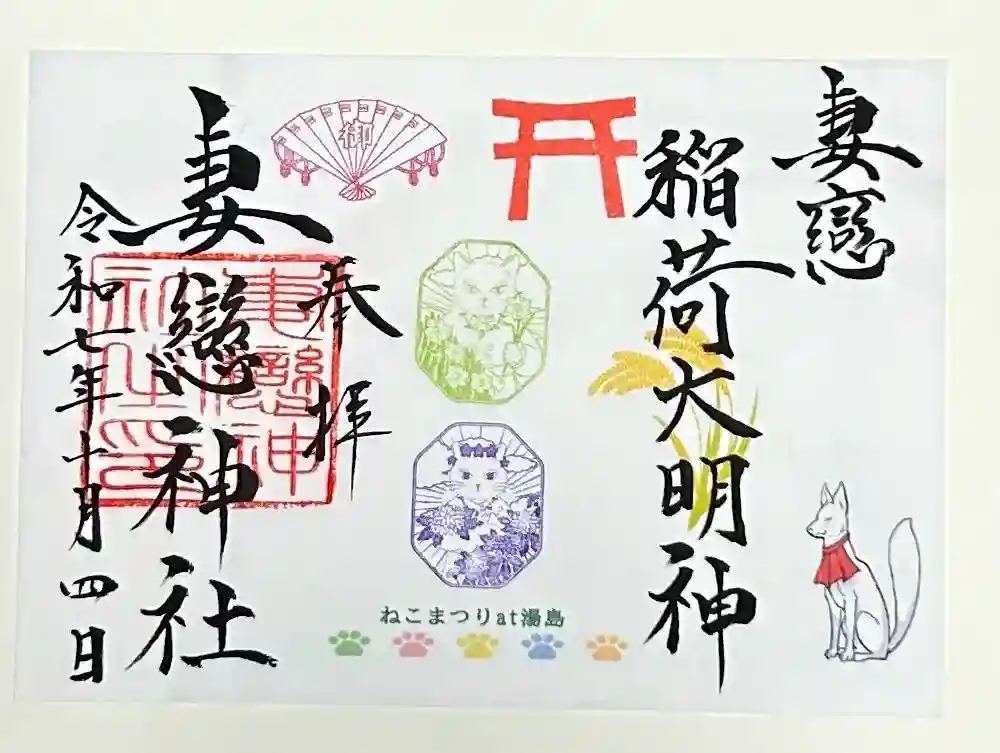 妻戀
稲荷大明神
御
奉拝
妻戀神社
妻戀神社之印
令和七年十月四日
ねこまつりat湯島